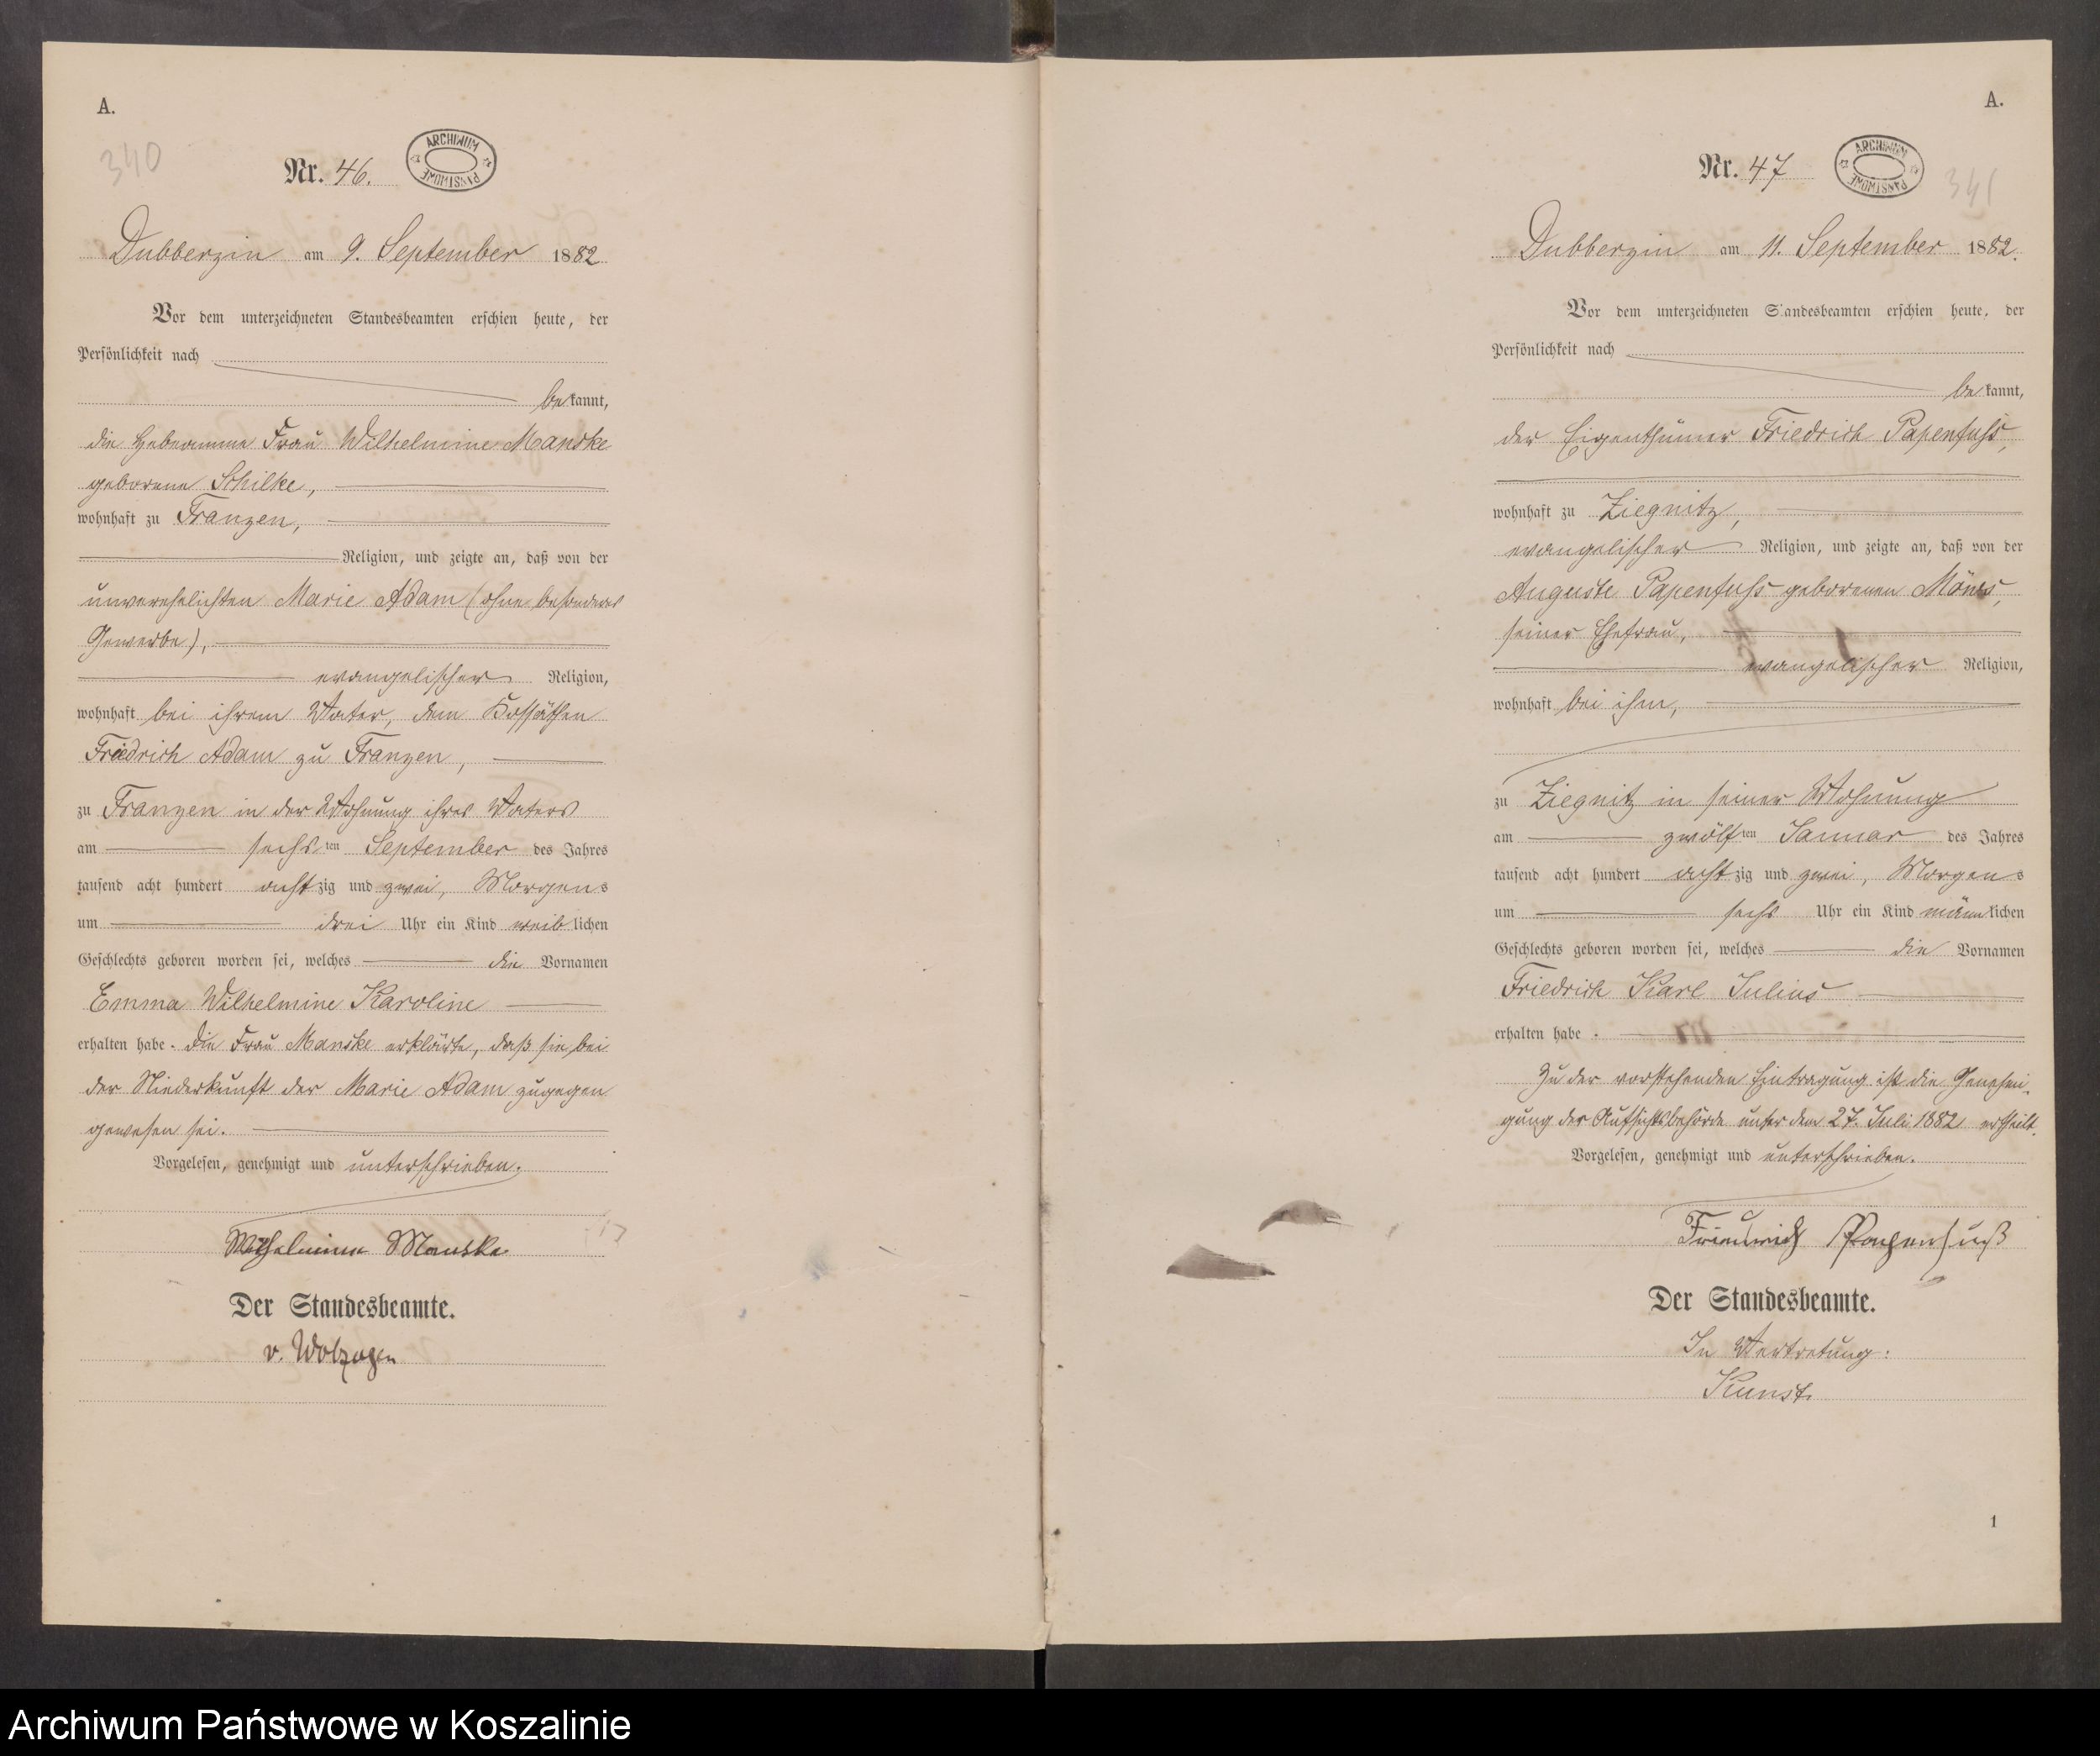 A.
340
Nr. 46.
ARCHIWUM PAŃSTWOWE
Dubberzin am 9. September 1882
Vor dem unterzeichneten Standesbeamten erschien heute, der
Persönlichkeit nach
bekannt,
die Hebeamme Frau Wilhelmine Manske
geborene Schilke,
wohnhaft zu Franzen,
Religion, und zeigte an, daß von der
unverehelichten Marie Adam (ohne besonderes
Gewerbe),
evangelischer Religion,
wohnhaft bei ihrem Vater, dem Kossäthen
Friedrich Adam zu Franzen,
zu Franzen in der Wohnung ihres Vaters
am sechsten September des Jahres
tausend acht hundert achtzig und zwei, Morgens
um drei Uhr ein Kind weiblichen
Geschlechts geboren worden sei, welches die Vornamen
Emma Wilhelmine Karoline
erhalten habe. Die Frau Manske erklärte, daß sie bei
der Niederkunft der Marie Adam zugegen
gewesen sei.
Vorgelesen, genehmigt und unterschrieben.
Wilhelmine Manske
Der Standesbeamte.
v. Wolzogen
A.
341
Nr. 47
ARCHIWUM PAŃSTWOWE
Dubberzin am 11. September 1882.
Vor dem unterzeichneten Standesbeamten erschien heute, der
Persönlichkeit nach
bekannt,
der Eigenthümer Friedrich Papenfuss,
wohnhaft zu Ziegnitz,
evangelischer Religion, und zeigte an, daß von der
Auguste Papenfuss geborenen
seiner Ehefrau,
evangelischer Religion,
wohnhaft bei ihm,
zu Ziegnitz in seiner Wohnung
am zwölften Januar des Jahres
tausend acht hundert achtzig und zwei, Morgens
um sechs Uhr ein Kind männlichen
Geschlechts geboren worden sei, welches die Vornamen
Friedrich Karl Julius
erhalten habe.
Zu der vorstehenden Eintragung ist die Genehmi-
gung der Aufsichtsbehörde unter dem 27. Juli 1882 ertheilt.
Vorgelesen, genehmigt und unterschrieben.
Friedrich Papenfuß
Der Standesbeamte.
In Vertretung:
Kunst.
1
Archiwum Państwowe w Koszalinie